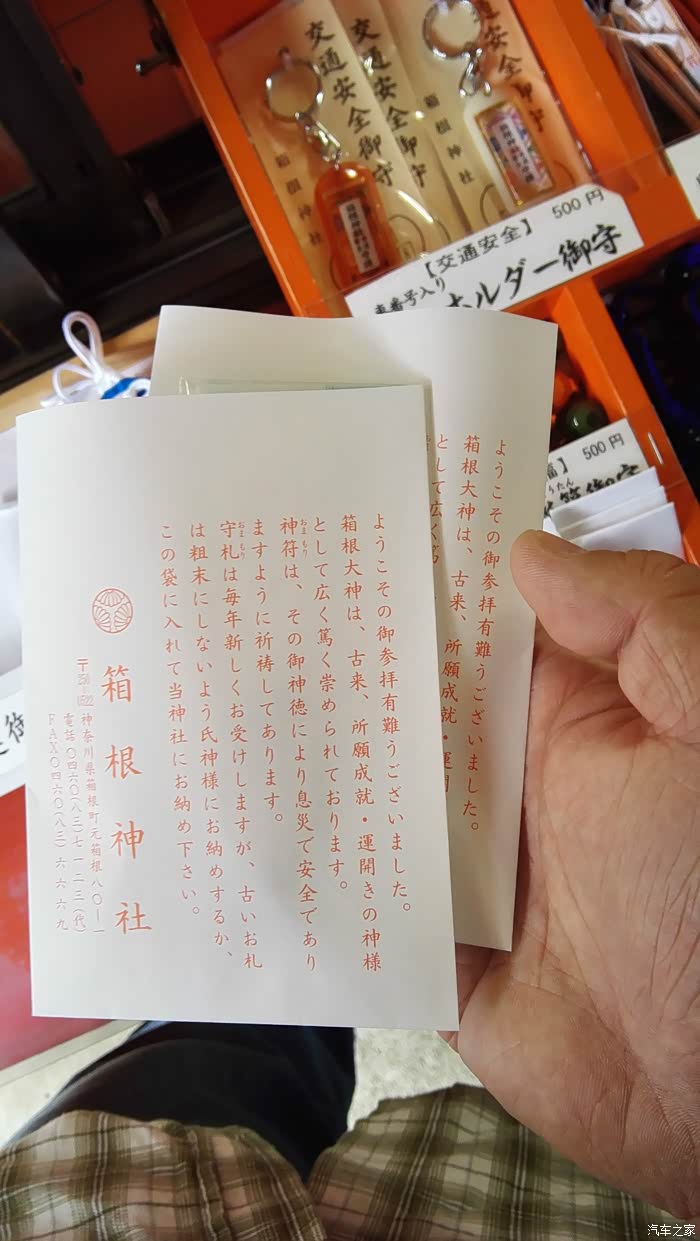 交通安全御守
箱根神社
交通安全御守
交通安全御守
箱根神社
【交通安全】
500円
車番号入り
ホルダー御守
500円
ようこその御参拝有難うございました。
箱根大神は、古来、所願成就・運開きの神様
として広く篤く崇められております。
神符は、その御神徳により息災で安全であり
おまもり
ますように祈祷してあります。
守札は毎年新しくお受けしますが、古いお札
おまもり
は粗末にしないよう氏神様にお納めするか、
この袋に入れて当神社にお納め下さい。
箱根神社
〒250-0522 神奈川県箱根町元箱根八〇ー一
電話〇四六〇(八三)七一二三(代)
FAX〇四六〇(八三)六六六九
ようこその御参拝有難うございました。
箱根大神は、古来、所願成就・運開
として広く篤
汽车之家